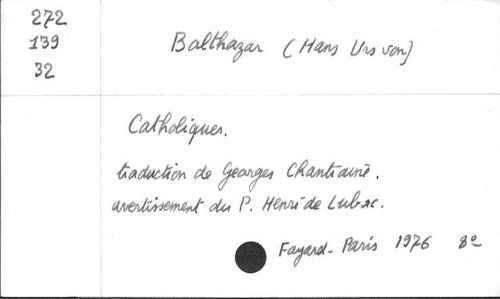 272
139
32
Balthazar (Hans Urs von)
Catholiques.
traduction de Georges Chantrainè.
avertissement du P. Henri de Lubac.
Fayard - Paris 1976 8º